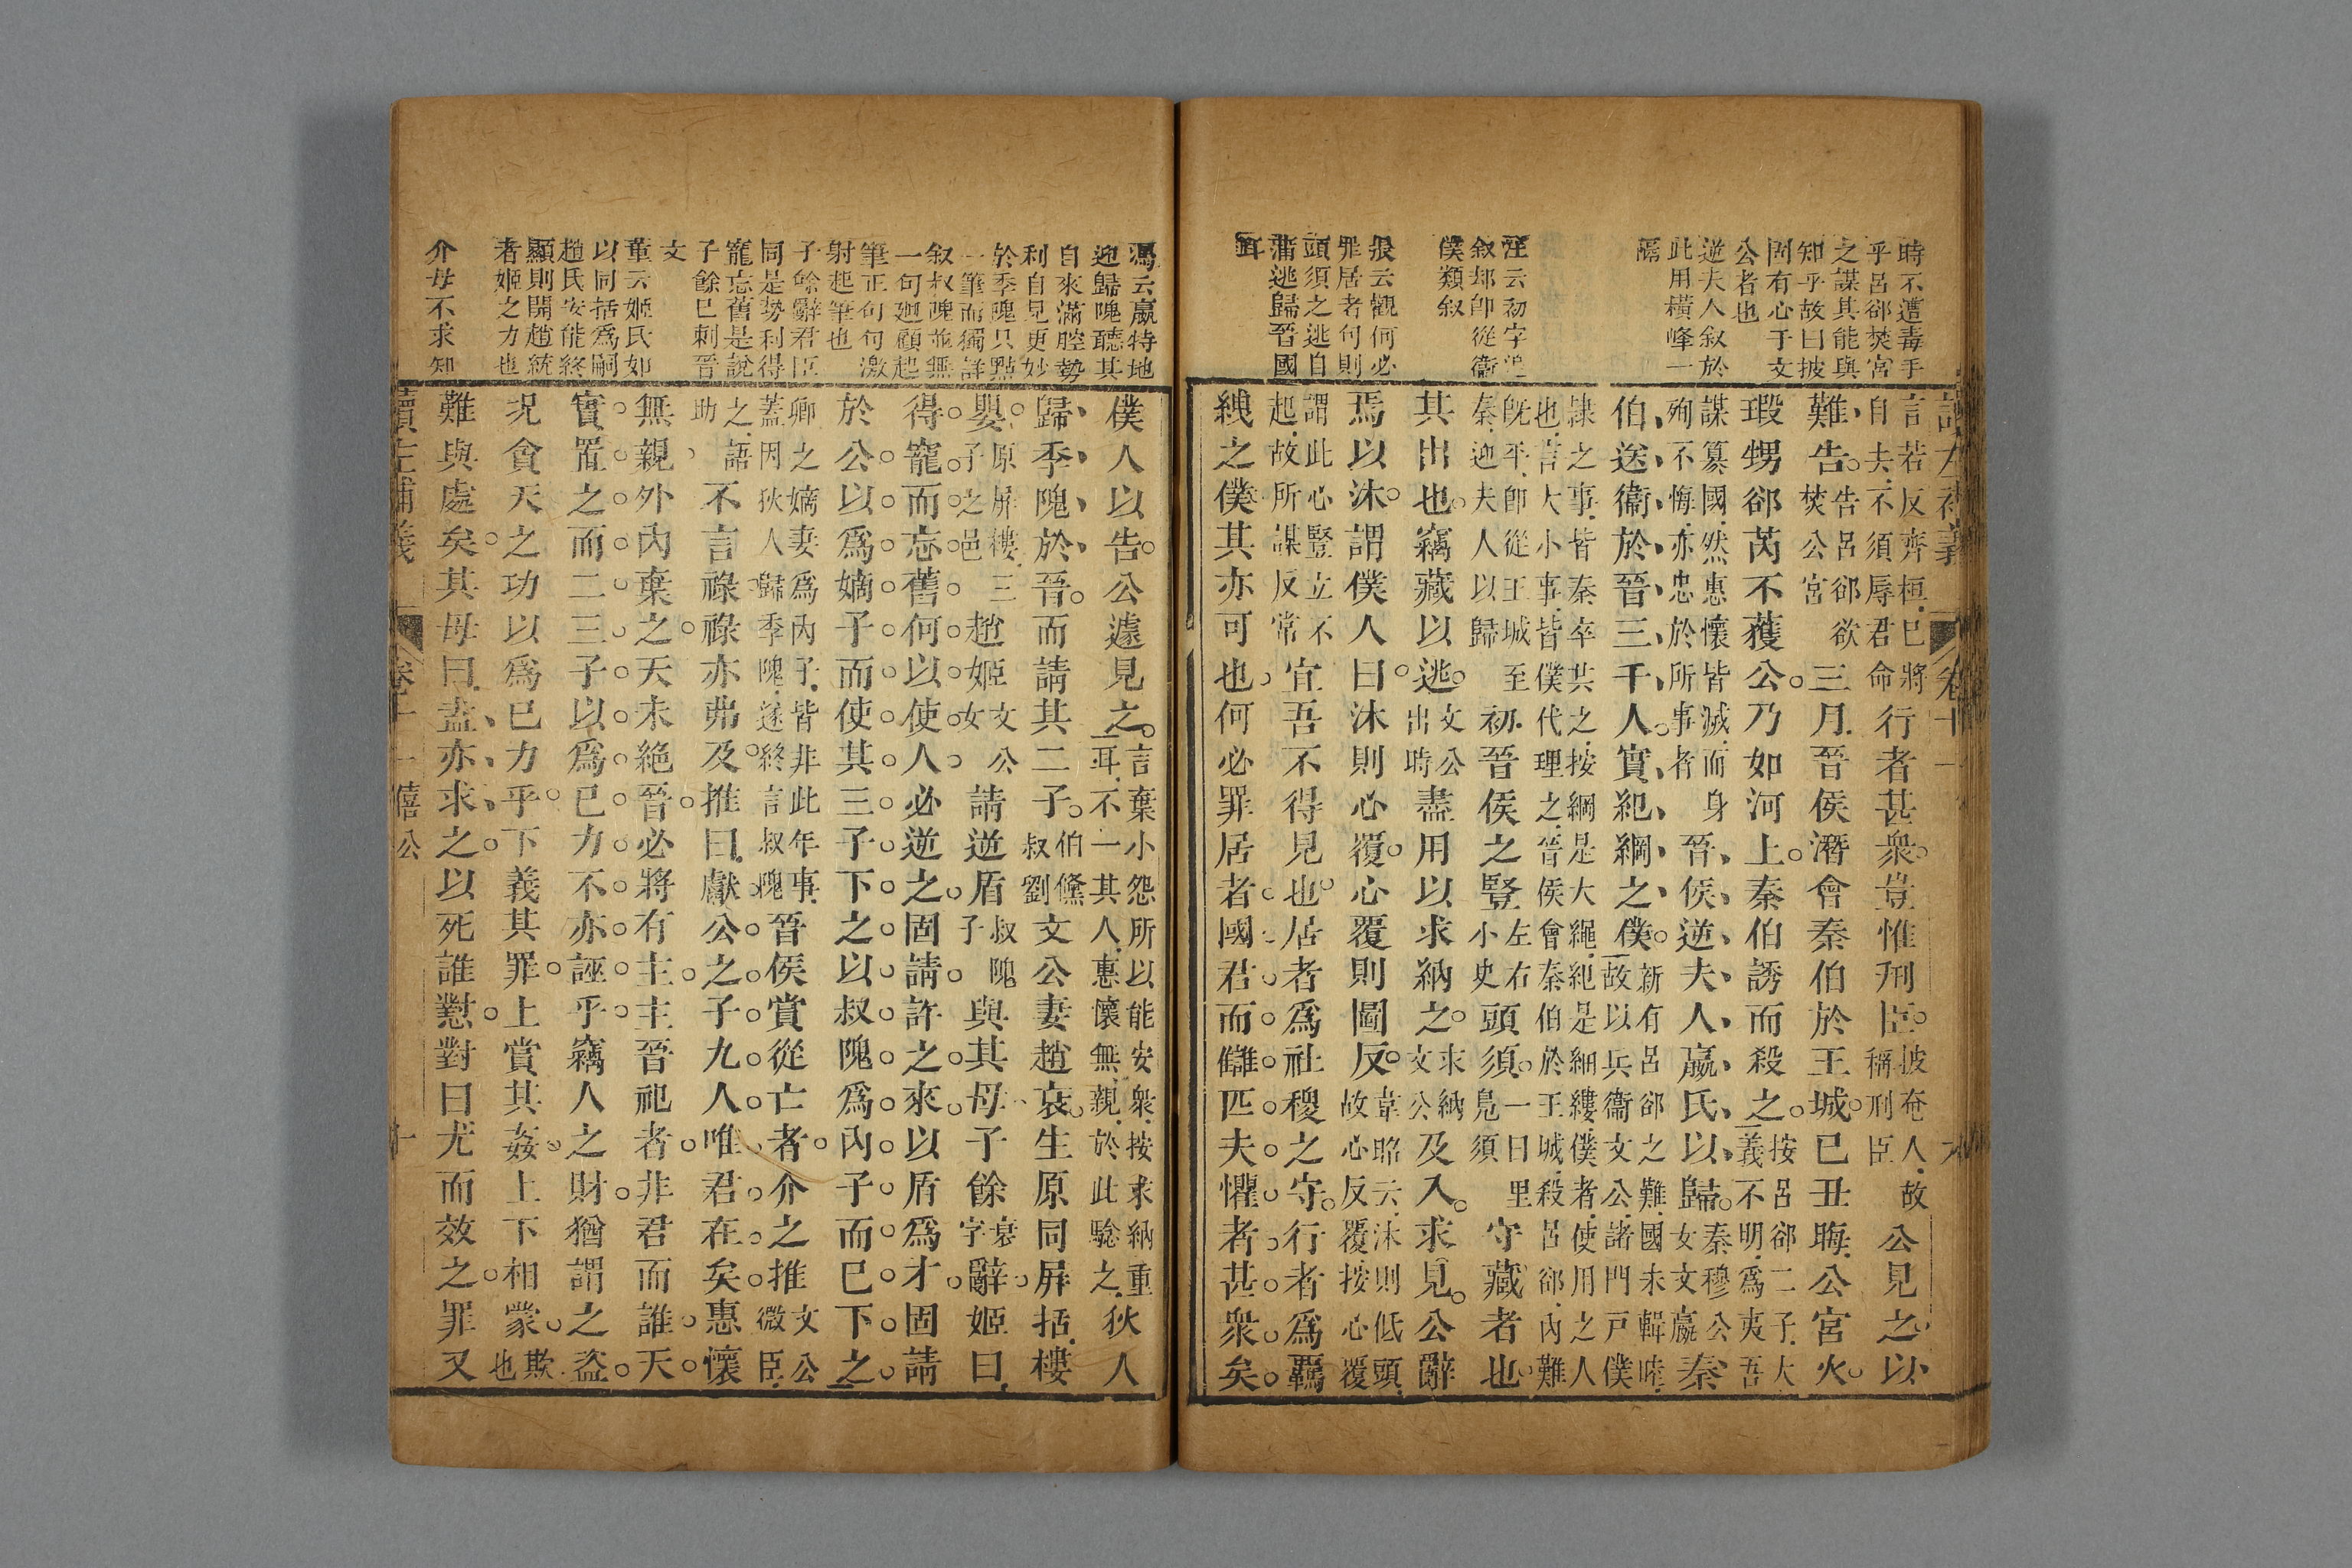 時不遭毒手
乎呂郤焚宮
之謀其能與
知乎故曰披
固有心于文
公者也
逆夫人叙於
此用橫峰一
隔
汪云初字追
叙却卽從衞
僕類叙
張云觀何必
罪居者句則
頭須之逃自
蒲逃歸晉國
耳
言若反齊桓巳將
自去不須辱君命行者甚衆豈惟刑臣披奄人故
稱刑臣公見之以
難告告呂郤欲
焚公宮三月晉侯潛會秦伯於王城巳丑晦公宮火
瑕甥郤芮不獲公乃如河上秦伯誘而殺之按呂郤二子大
義不明爲夷吾
謀簒國然惠懷皆滅而身
殉不悔亦忠於所事者晉侯逆夫人嬴氏以歸秦穆公
女文嬴秦
伯送衞於晉三千人實紀綱之僕新有呂郤之難國未輯睦
故以兵衞文公諸門戸僕
隷之事皆秦卒共之按綱是大繩紀是細縷僕者使用之人
也言大小事皆僕代理之晉侯會秦伯於王城殺呂郤內難
旣平卽從王城至
秦迎夫人以歸初晉侯之豎左右
小史頭須一曰里
鳧須守藏者也
其出也竊藏以逃文公
出時盡用以求納之求納
文公及入求見公辭
焉以沐謂僕人曰沐則心覆心覆則圖反韋昭云沐則低頭
故心反覆按心覆
謂此心豎立不
起故所謀反常宜吾不得見也居者爲社稷之守行者爲羈
絏之僕其亦可也何必罪居者國君而讎匹夫懼者甚衆矣
馮云嬴特地
迎歸隗聽其
自來滿腔勢
利自見更妙
於季隗只點
一筆而獨詳
叙叔隗並無
一句廻顧起
筆正句句激
射起筆也
子餘辭君臣
同是勢利得
寵忘舊是說
子餘巳刺晉
文
董云姬氏如
以同括爲嗣
趙氏安能終
顯則開趙統
者姬之力也
介母不求知
僕人以告公遽見之言棄小怨所以能安衆按求納重
耳不一其人惠懷無親於此騐之狄人
歸季隗於晉而請其二子伯鯈
叔劉文公妻趙衰生原同屛括樓
嬰原屛樓三
子之邑趙姬文公
女請逆盾叔隗
子與其母子餘衰
字辭姬曰
得寵而忘舊何以使人必逆之固請許之來以盾爲才固請
於公以爲嫡子而使其三子下之以叔隗爲內子而巳下之
卿之嫡妻爲內子皆非此年事
蓋因狄人歸季隗遂終言叔隗晉侯賞從亡者介之推文公
微臣
之語
助不言祿祿亦弗及推曰獻公之子九人唯君在矣惠懷
無親外內棄之天未絶晉必將有主主晉祀者非君而誰天
實置之而二三子以爲巳力不亦誣乎竊人之財猶謂之盜
況貪天之功以爲巳力乎下義其罪上賞其姦上下相蒙欺
也
難與處矣其母曰盍亦求之以死誰懟對曰尤而效之罪又
讀左補義 卷十一 僖公 十